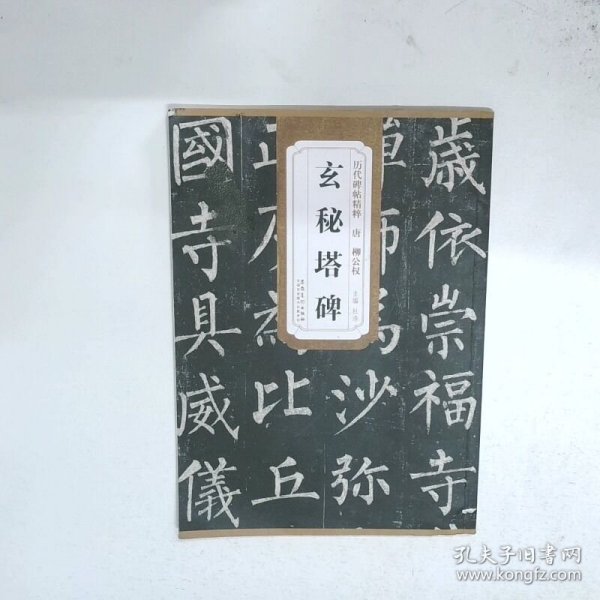 歳依崇福寺
師為沙弥
比丘
國寺具威儀
历代碑帖精粹 唐 柳公权
主编 杜浩
玄秘塔碑
安徽美术出版社
孔夫子旧书网
www.kongfz.com